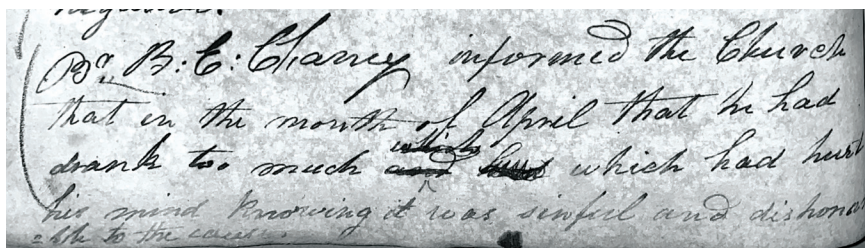 Br. B: C: Clancy informed the Church
that in the month of April that he had
drank too much which which had hurt
his mind knowing it was sinful and dishonor
=able to the cause.